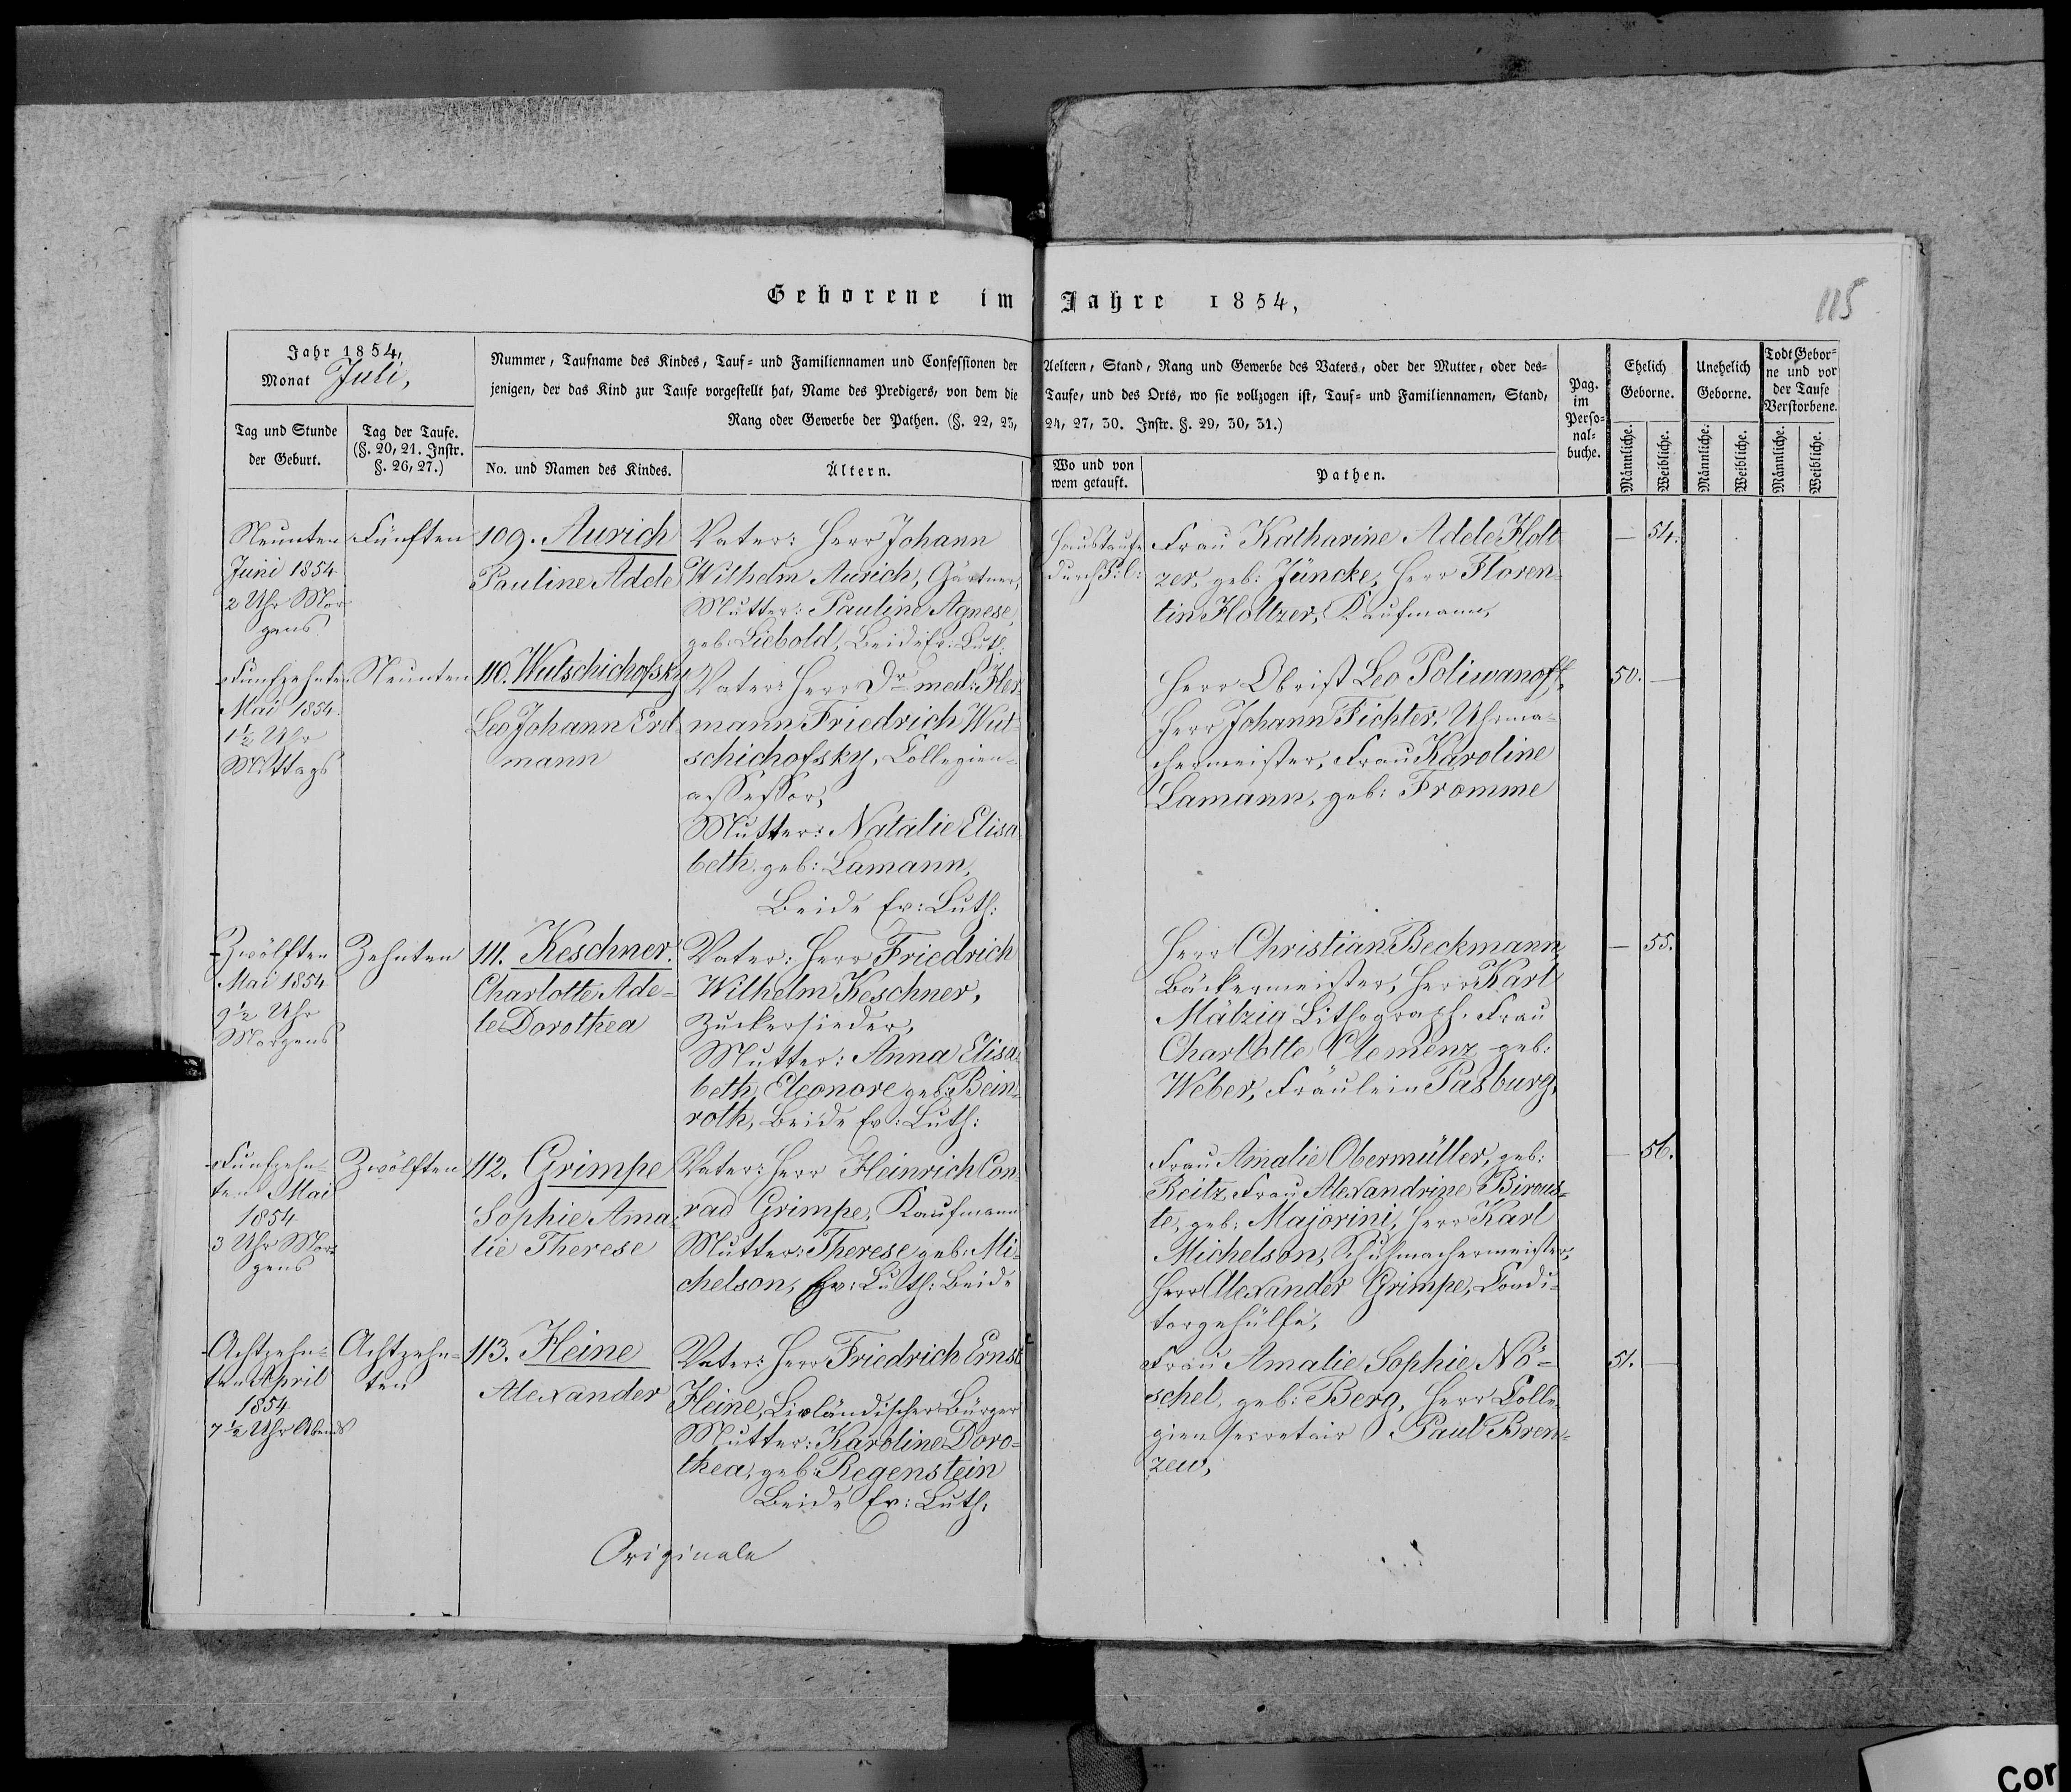 Geborene im Jahre 1854,
115
Jahr 1854,
Monat Juli,
Tag und Stunde
der Geburt.
Tag der Taufe.
(§. 20, 21. Instr.
§. 26, 27.)
Nummer, Taufname des Kindes, Tauf- und Familiennamen und Confessionen der
jenigen, der das Kind zur Taufe vorgestellt hat, Name des Predigers, von dem die
Rang oder Gewerbe der Pathen. (§. 22, 23,
No. und Namen des Kindes.
Ältern.
Aeltern, Stand, Rang und Gewerbe des Vaters, oder der Mutter, oder des-
Taufe, und des Orts, wo sie vollzogen ist, Tauf- und Familiennamen, Stand,
24, 27, 30. Instr. §. 29, 30, 31.)
Wo und von
wem getauft.
Pathen.
Pag.
im
Perso-
nal-
buche.
Ehelich
Geborne.
Männliche.
Weibliche.
Unehelich
Geborne.
Männliche.
Weibliche.
Todt Gebor-
ne und vor
der Taufe
Verstorbene.
Männliche.
Weibliche.
Neunten
Juni 1854
2 Uhr Mor-
gens
Fünften
109. Aurich
Pauline Adele
Vater: Herr Johann
Wilhelm Aurich, Gärtner,
Mutter: Pauline Agnese,
geb: Liebold, Beide Ev: Luth:
Haustaufe
durch
Frau Katharine Adele Holt
zer, geb: Jüncke, Herr Floren-
tin Holtzer, Kaufmann,
— 54.
Funfzehnten
Mai 1854.
1 1/2 Uhr
Mittags
Neunten
110. Wutschichofsky
Leo Johann Erd-
mann
Vater: Herr Dr. med: Her-
mann Friedrich Wut-
schichofsky, Collegien-
assessor,
Mutter: Natalie Elisa
beth, geb: Lamann,
Beide Ev: Luth:
Herr Obrist Leo Poliwanoff,
Herr Johann Fichter, Uhrma-
chermeister, Frau Karoline
Lamann, geb: Fromme
50. —
Zwölften
Mai 1854
9 1/2 Uhr
Morgens
Zehnten
111. Keschner.
Charlotte Ade-
le Dorothea
Vater: Herr Friedrich
Wilhelm Keschner,
Zuckersieder,
Mutter: Anna Elisa-
beth, Eleonore geb: Bein-
roth, Beide Ev: Luth:
Herr Christian Beckmann,
Bäckermeister, Herr Karl
Mälzig Lithograph, Frau
Charlotte Clemenz geb:
Weber, Fräulein Pasburg,
— 55.
Funfzehn-
ten Mai
1854
3 Uhr Mor-
gens
Zwölften
112. Grimpe
Sophie Ama-
lie Therese
Vater: Herr Heinrich Con-
rad Grimpe, Kaufmann
Mutter: Therese geb: Mi-
chelson, Ev: Luth: Beide
Frau Amalie Obermüller, geb:
Reitz, Frau Alexandrine Birous-
te, geb: Majorini, Herr Karl
Michelson, Schuhmachermeister,
Herr Alexander Grimpe, Condi-
torgehülfe,
— 56.
Achtzehn-
ten April
1854
7 1/2 Uhr Abends
Achtzehn-
ten
113. Heine
Alexander
Vater: Herr Friedrich Ernst
Heine, Livländischer Bürger
Mutter: Karoline Doro-
thea, geb: Regenstein
Beide Ev: Luth,
Frau Amalie Sophie Nö-
schel, geb: Berg, Herr Colle-
gien secretair Paul Bren-
zew,
51. —
Originale
Cor